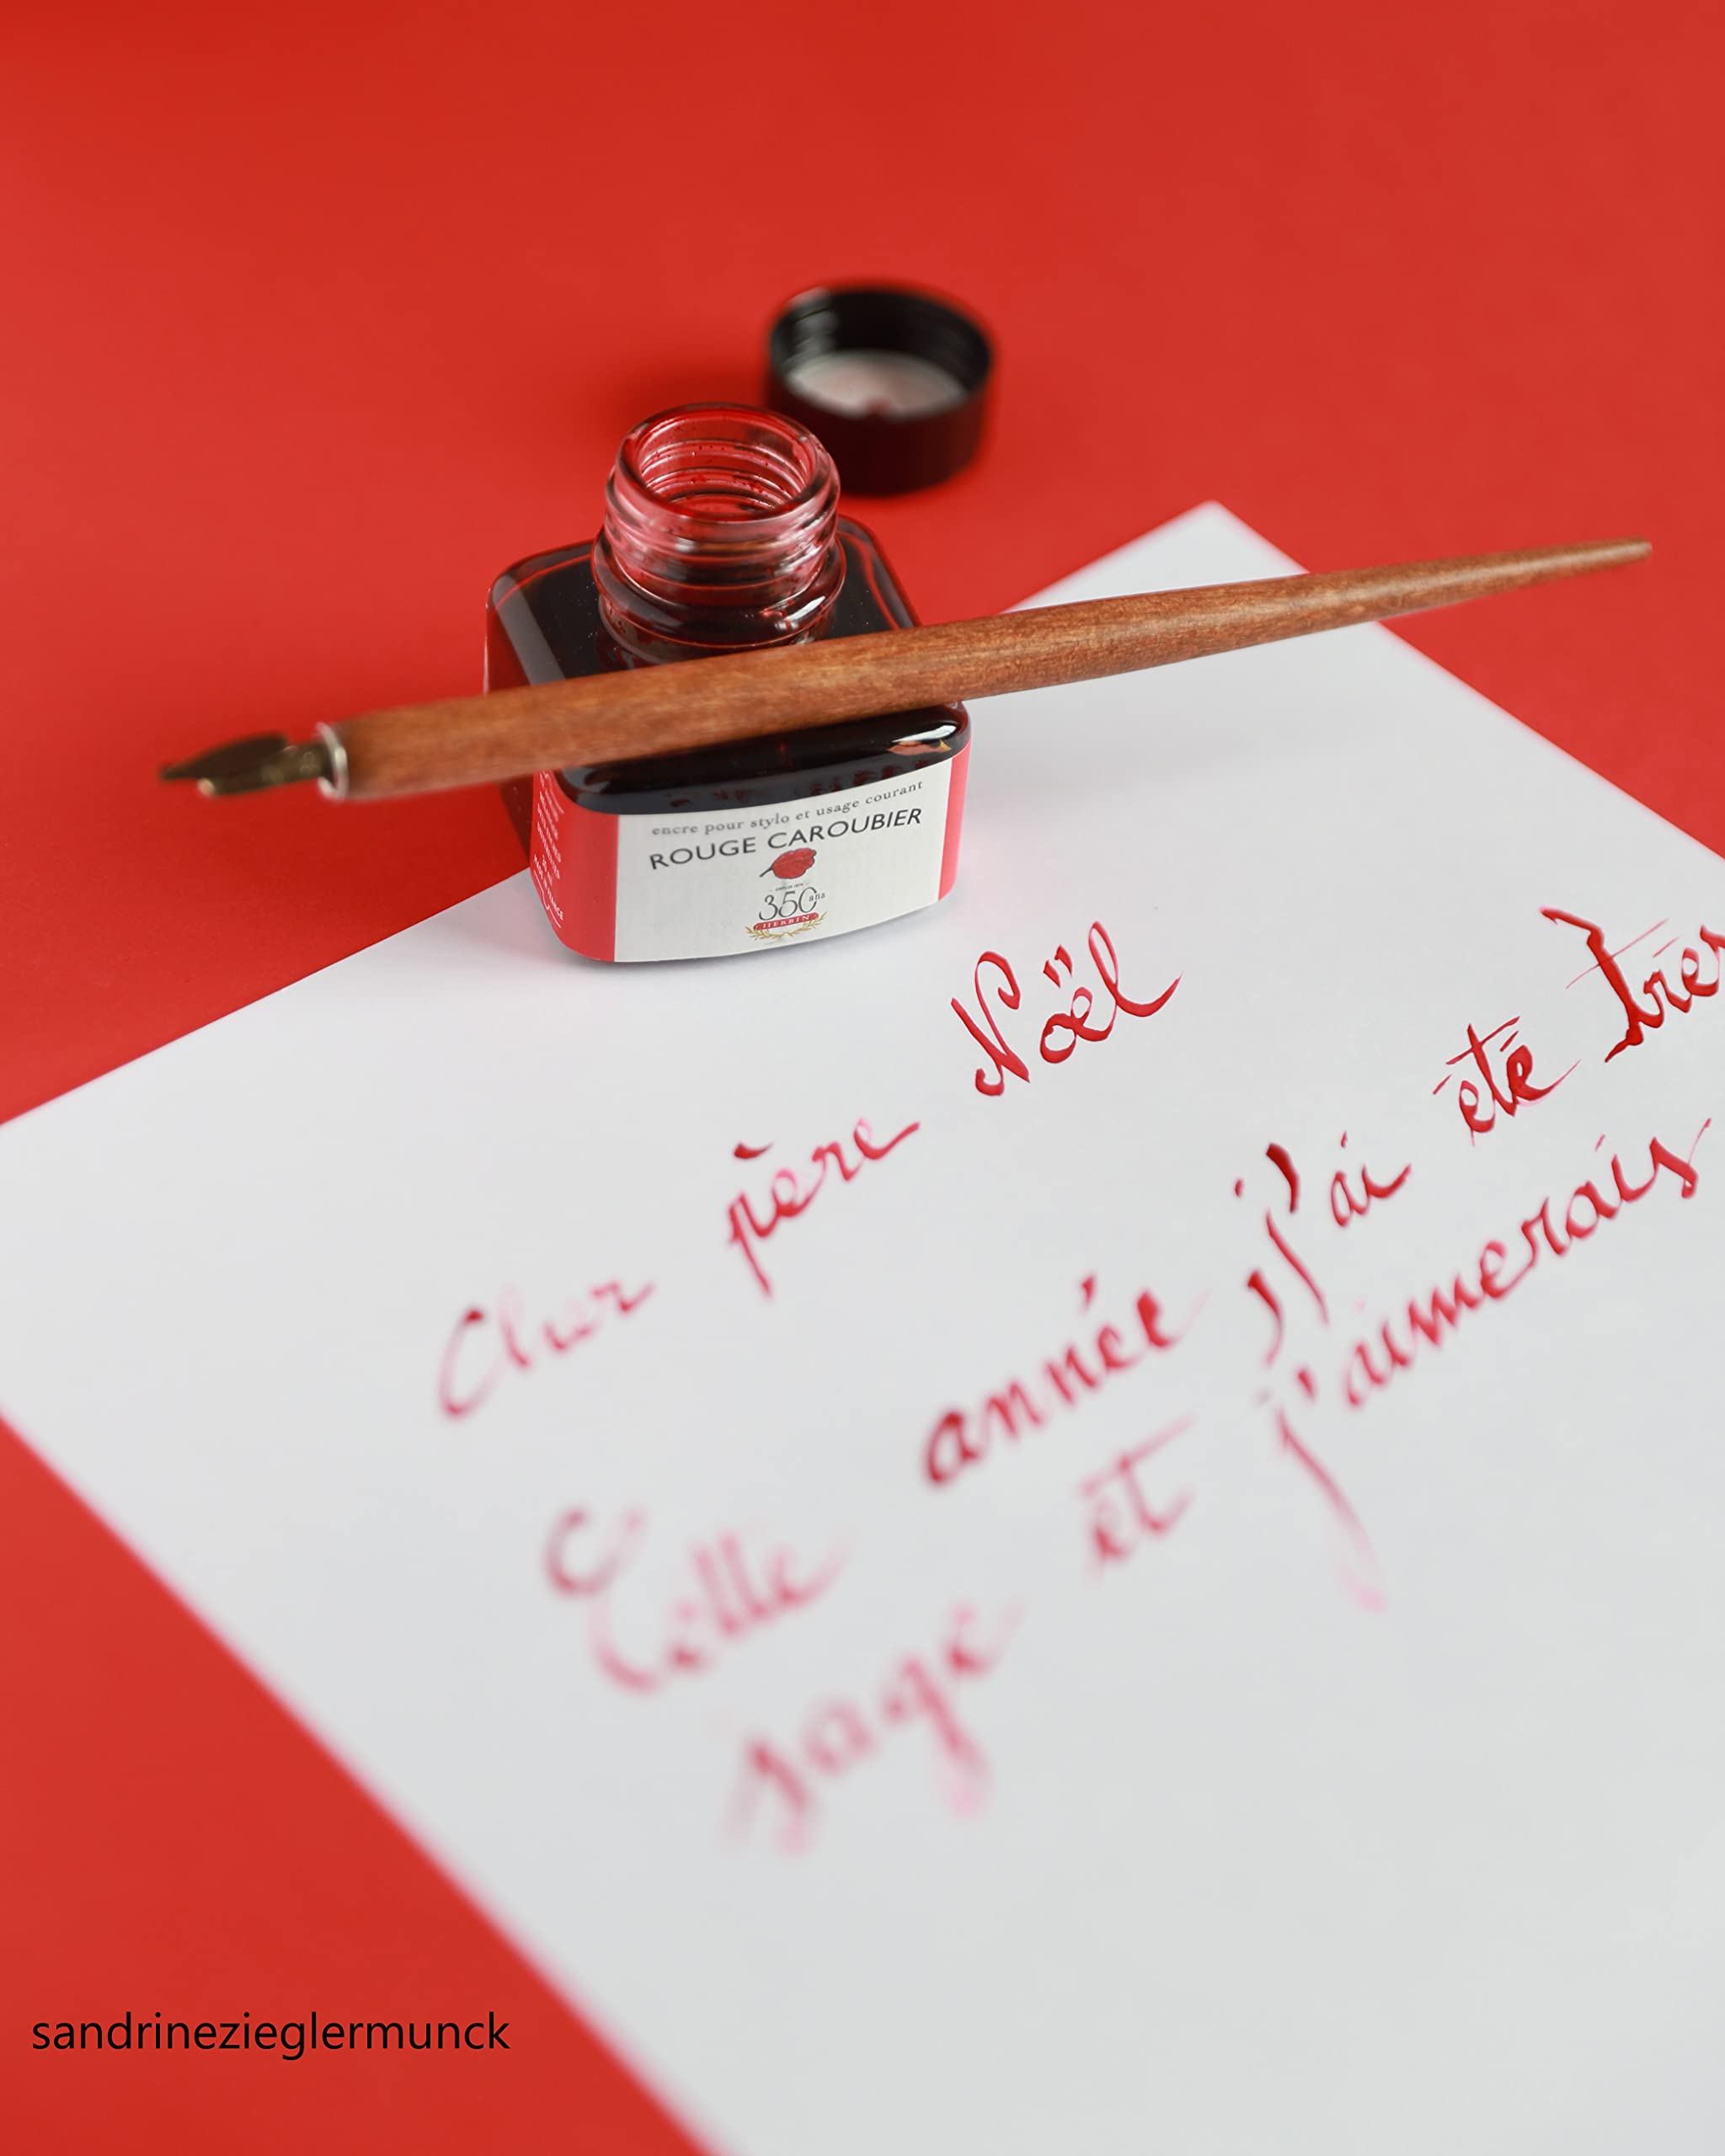 encre pour stylo et usage courant
ROUGE CAROUBIER
350 ans
HERBIN
Cher père Noël
Cette année j'ai été
sage et j'aimerais
sandrinezieglermunck